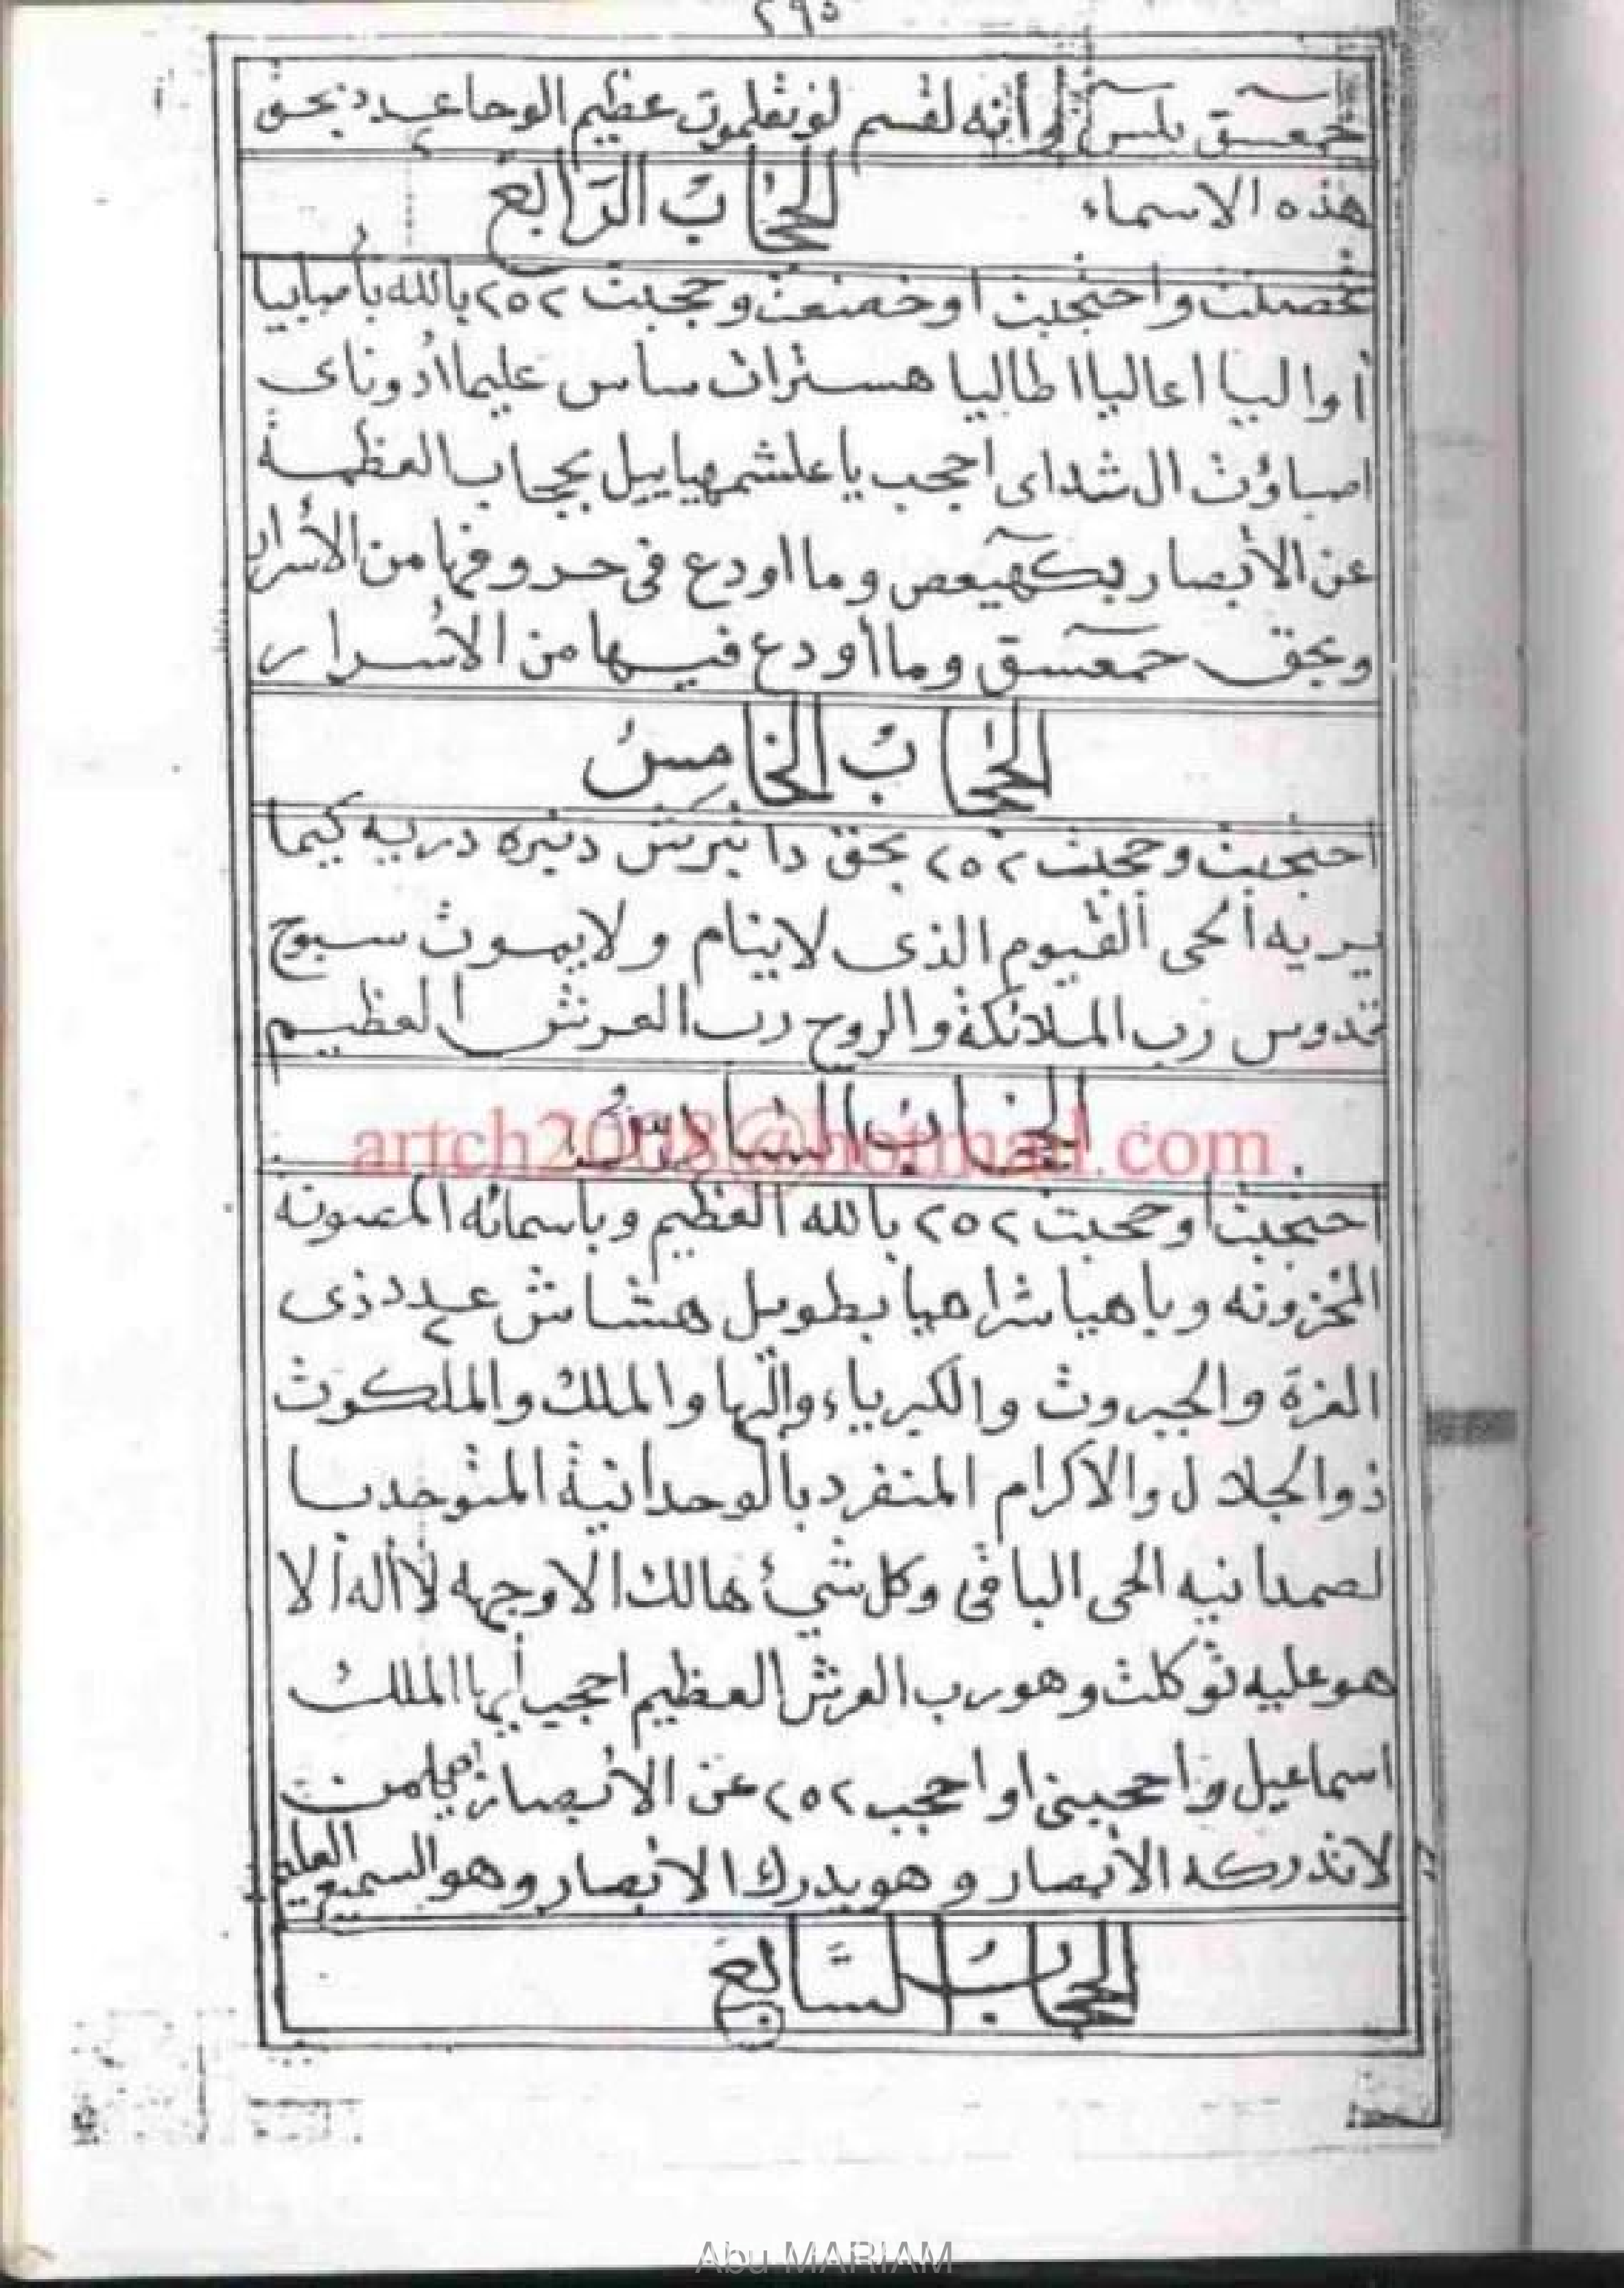 ٢٩٥
حمعسق يس وأنه لقسم لو تعلمون عظيم الوحا عدد ٢ بحق
هذه الاسماء الحجاب الرابع
تحصلت واحتجبت اوحصنت وحجبت ٢٥٢ بالله
أواليا اعاليا اطاليا هسترات ساس عليما أدوناى
اصباؤت ال شداى احجب يا علشمهياييل بحجاب العظمة
عن الأبصار بكهيعص وما اودع فى حروفها من الأسرار
وبحق حمعسق وما أودع فيها من الأسرار
الحجاب الخامس
احتجبت وحجبت ٢٥٢ بحق دنبره دربيه كيما
يربه ألحى ألقيوم الذى لاينام ولايموت سبوح
قدوس رب الملائكة والروح رب العرش العظيم
الحجاب السادس
artch2008@hotmail.com
احتجبت اوحجبت ٢٥٢ بالله العظيم وباسمائه المصونة
المخزونه وباهيا شراهيا بطويل هشاش عدد ٢ ذى
العزة والجبروت والكبرياء والبها والملك والملكوت
ذوالجلال والاكرام المتفرد بالوحدانية المتوحد با
لصمدانيه الحى الباقى وكل شيئ هالك الاوجهه لاأله ألا
هوعليه توكلت وهورب العرش العظيم احجب أيها الملك
اسماعيل واحجبنى اواحجب ٢٥٢ عن الأبصار يامن
لاتدركه الأبصار وهويدرك الابصار وهوالسميع العليم
الحجاب السابع
Abu MARIAM